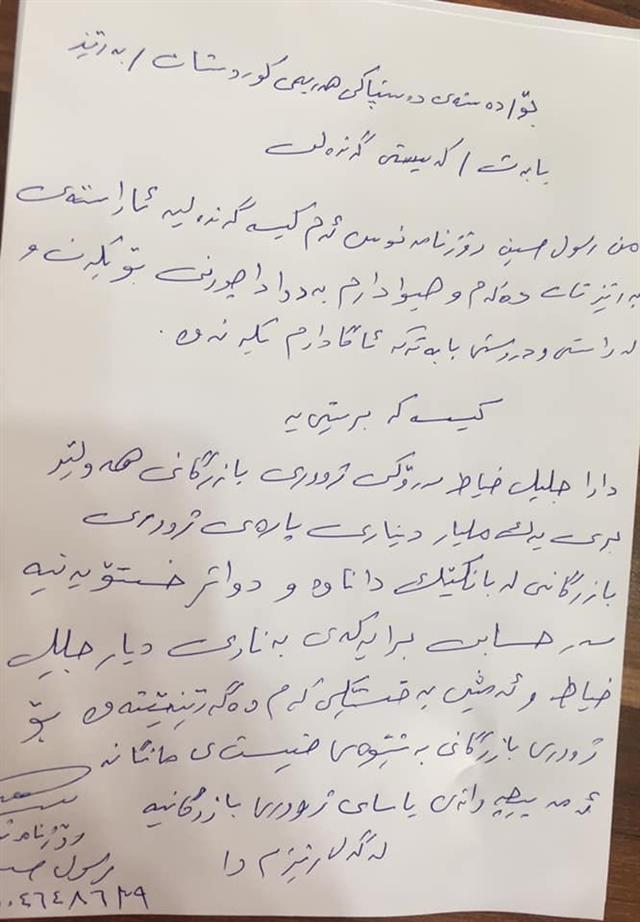 بۆ/ دەستەی دەستپاکی هەرێمی کوردستان / بەڕێز
بابەت / کەیسێکی گەندەلی
من رسول حسین ڕۆژنامەنوس ئەم کیسە گەندەلیە ئاراستەی
بەڕێزتان دەکەم و هیوادارم بەدواداچونی بۆ بکەن و
لە ڕاستی و دروستی بابەتەکە ئاگادارم بکەنەوە.
کیسەکە بریتی یە
دارا جلیل خیاط سەرۆکی ژووری بازرگانی هەولێر
بری یەک ملیار دیناری پارەی ژووری
بازرگانی لە بانکێک داناوە و دواتر خستۆیەتیە
سەر حسابی برایەکەی بەناوی دیار جلیل
خیاط و ئەمیش بە قستێکی کەم دەگەڕێنێتەوە بۆ
ژووری بازرگانی بە شێوەی قیستەی مانگانە
ئەمە پێچەوانەی یاسای ژووری بازرگانیە
لەگەڵ ڕێزم دا
ڕۆژنامە
رسول حسین
٠٤٦٤٨٦٢٩